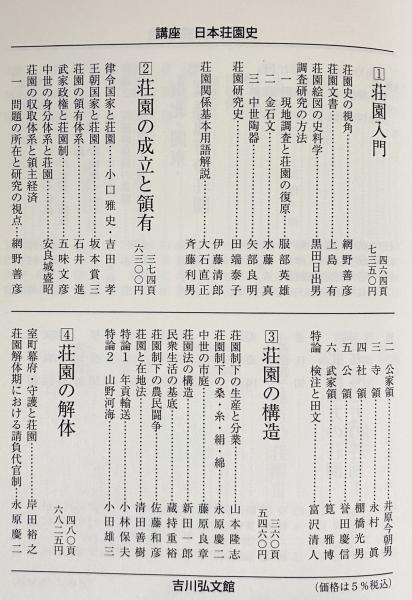 講座 日本荘園史
1 荘園入門
四六四頁
七三五〇円
荘園史の視角……網野善彦
荘園文書……上島 有
荘園絵図の史料学……黒田日出男
調査研究の方法
一 現地調査と荘園の復原……服部英雄
二 金石文……水藤 真
三 中世陶器……矢部良明
荘園研究史……田端泰子
伊藤清郎
荘園関係基本用語解説……大石直正
斉藤利男
2 荘園の成立と領有
三七四頁
六三〇〇円
律令国家と荘園……小口雅史・吉田 孝
王朝国家と荘園……坂本賞三
荘園の領有体系……石井 進
武家政権と荘園制……五味文彦
中世の身分体系と荘園……安良城盛昭
荘園の収取体系と領主経済
一 問題の所在と研究の視点……網野善彦
二 公家領……井原今朝男
三 寺領……永村 眞
四 社領……棚橋光男
五 公領……誉田慶信
六 武家領……筧 雅博
特論 検注と田文……富沢清人
3 荘園の構造
三六〇頁
五四六〇円
荘園制下の生産と分業……山本隆志
荘園制下の桑・糸・絹・綿……永原慶二
中世の市庭……藤原良章
荘園法の構造……新田一郎
民衆生活の基底……蔵持重裕
荘園制下の農民闘争……佐藤和彦
荘園と在地法……清田善樹
特論1 年貢輸送……小林保夫
特論2 山野河海……小田雄三
4 荘園の解体
四八〇頁
六八二五円
室町幕府・守護と荘園……岸田裕之
荘園解体期における請負代官制…永原慶二
吉川弘文館
(価格は5%税込)